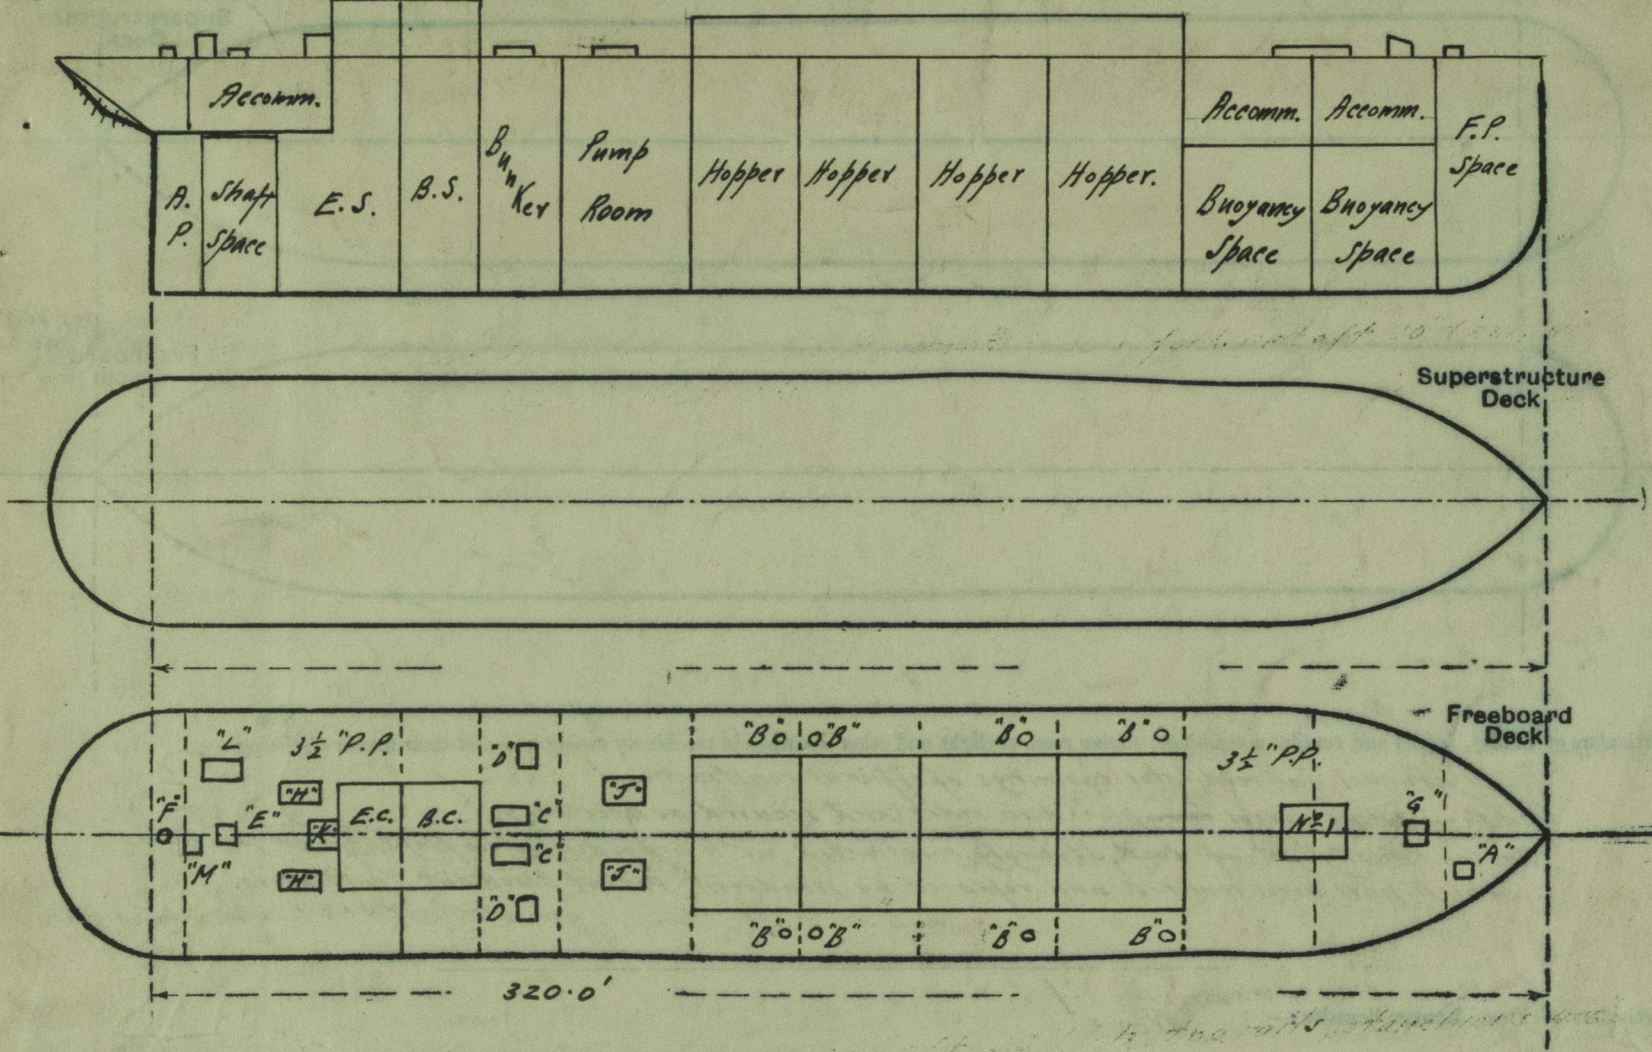 Accomm.
A.
P.
Shaft
Space
E.S.
B.S.
Bunker
Pump
Room
Hopper
Hopper
Hopper
Hopper.
Accomm.
Accomm.
Buoyancy
Space
Buoyancy
Space
F.P.
Space
Superstructure
Deck
Freeboard
Deck
"L"
3½" P.P.
"D"
"B"
"B"
"B"
"B"
3½" P.P.
"F"
"M"
"E"
"H"
"K"
E.C.
B.C.
"C"
"C"
"J"
Nº 1
"G"
"A"
"H"
"D"
"J"
"B"
"B"
"B"
B"
320.0'